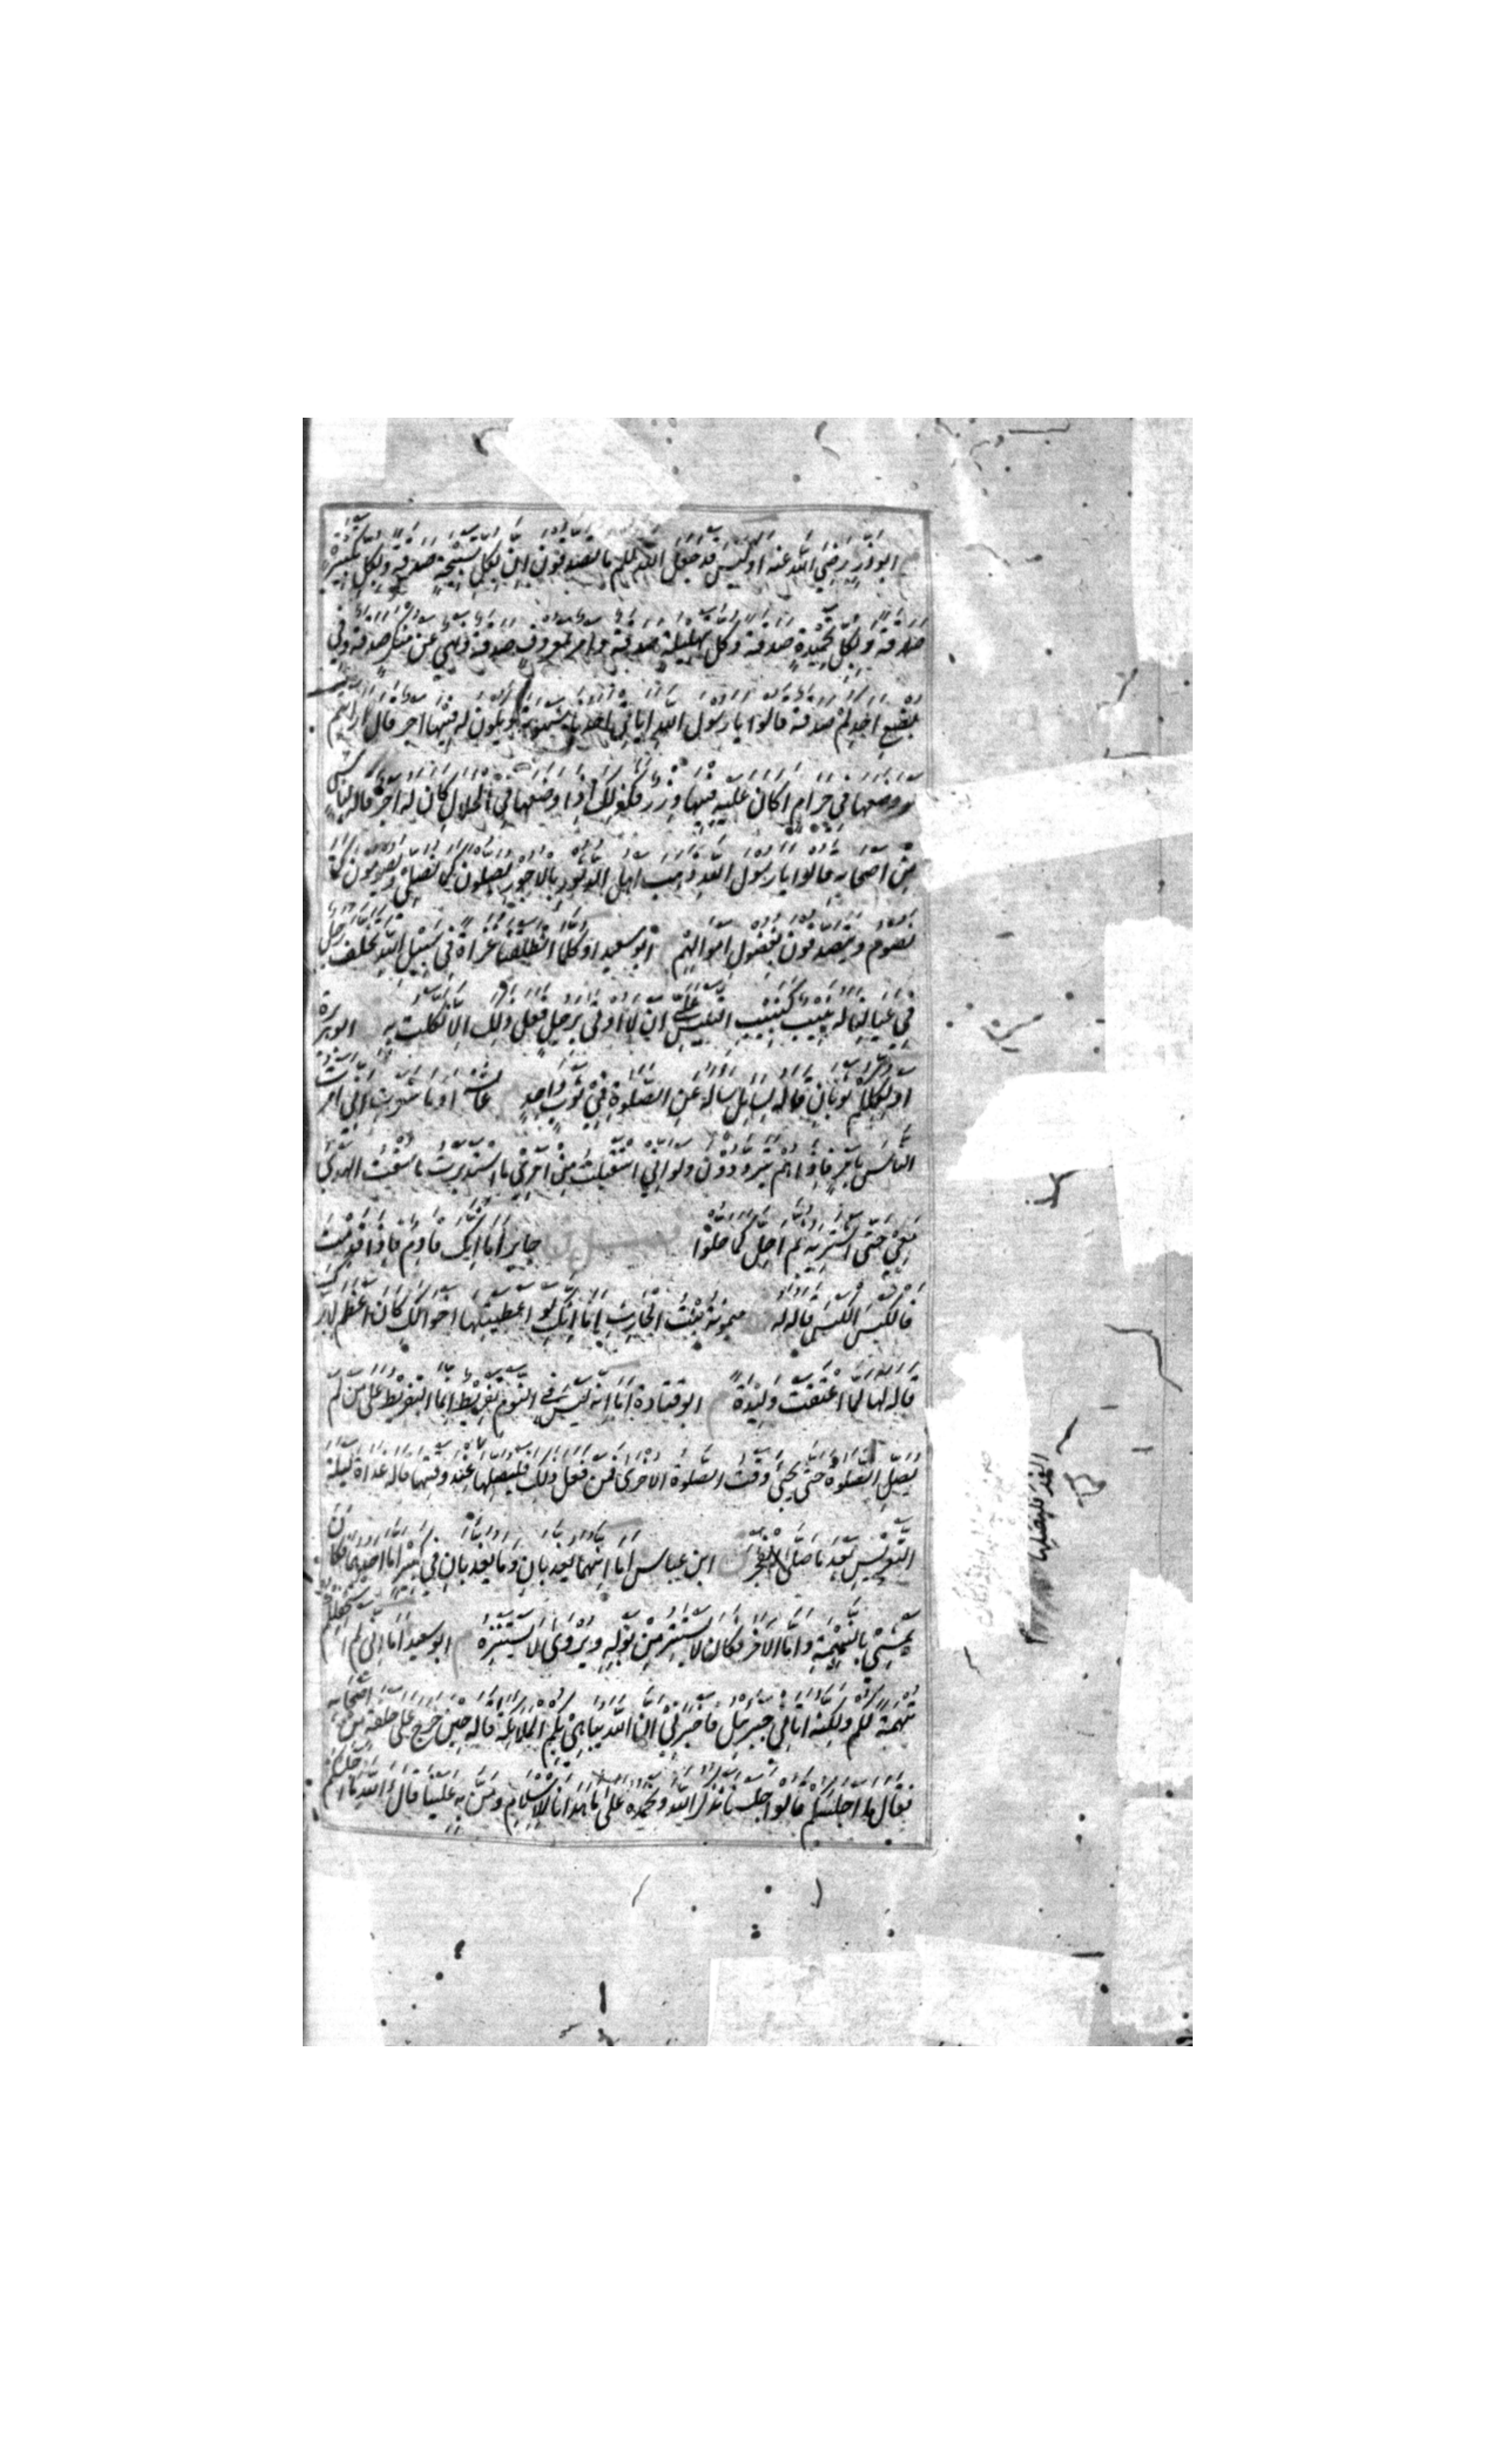 ابوذر رضي الله عنه اوليس قد جعل الله لكم ما تصدقون ان بكل تسبيحة صدقة وبكل تكبيرة
صدقة وبكل تحميدة صدقة وكل تهليلة صدقة وامر بمعروف صدقة ونهي عن منكر صدقة وفي
بضع احدكم صدقة قالوا يا رسول الله اياتي احدنا شهوته ويكون له فيها اجر قال ارايتم
لو وضعها في حرام اكان عليه فيها وزر فكذلك اذا وضعها في الحلال كان له اجر قاله لناس
من اصحابه قالوا يا رسول الله ذهب اهل الدثور بالاجور يصلون كما نصلي ويصومون كما
نصوم ويتصدقون بفضول اموالهم ابو سعيد اوكلما انطلقنا غزاة في سبيل الله تخلف رجل
في عيالنا له نبيب كنبيب التيس علي ان لا اوتى برجل فعل ذلك الا نكلت به ابو هريرة
اولكلكم ثوبان قاله لسائل ساله عن الصلوة في ثوب واحد عائشة اوما شعرت اني امرت
الناس بامر فاذا هم يترددون ولو اني استقبلت من امري ما استدبرت ما سقت الهدي
معي حتى اشتريه ثم احل كما حلوا فصل جابر اما انك قادم فاذا قدمت
فالكيس الكيس قاله له ميمونة بنت الحارث اما انك لو اعطيتها اخوالك كان اعظم لاجرك
قاله لها لما اعتقت وليدة م ابو قتادة اما انه ليس في النوم تفريط انما التفريط على من لم
يصل الصلوة حتى يجيء وقت الصلوة الاخرى فمن فعل ذلك فليصلها عند وقتها قاله غداة ليلة
التعريس بعد ما صلى الفجر ابن عباس اما انهما يعذبان وما يعذبان في كبير اما احدهما فكان
يمشي بالنميمة واما الاخر فكان لا يستتر من بوله ويروى لا يستنزه م ابو سعيد اما اني لم استحلفكم
تهمة لكم ولكنه اتاني جبرئيل فاخبرني ان الله يباهي بكم الملائكة قاله حين خرج على حلقة من اصحابه
فقال ما اجلسكم قالوا جلسنا نذكر الله ونحمده على ما هدانا للاسلام ومن به علينا قال آلله ما اجلسكم
الغد فليصلها